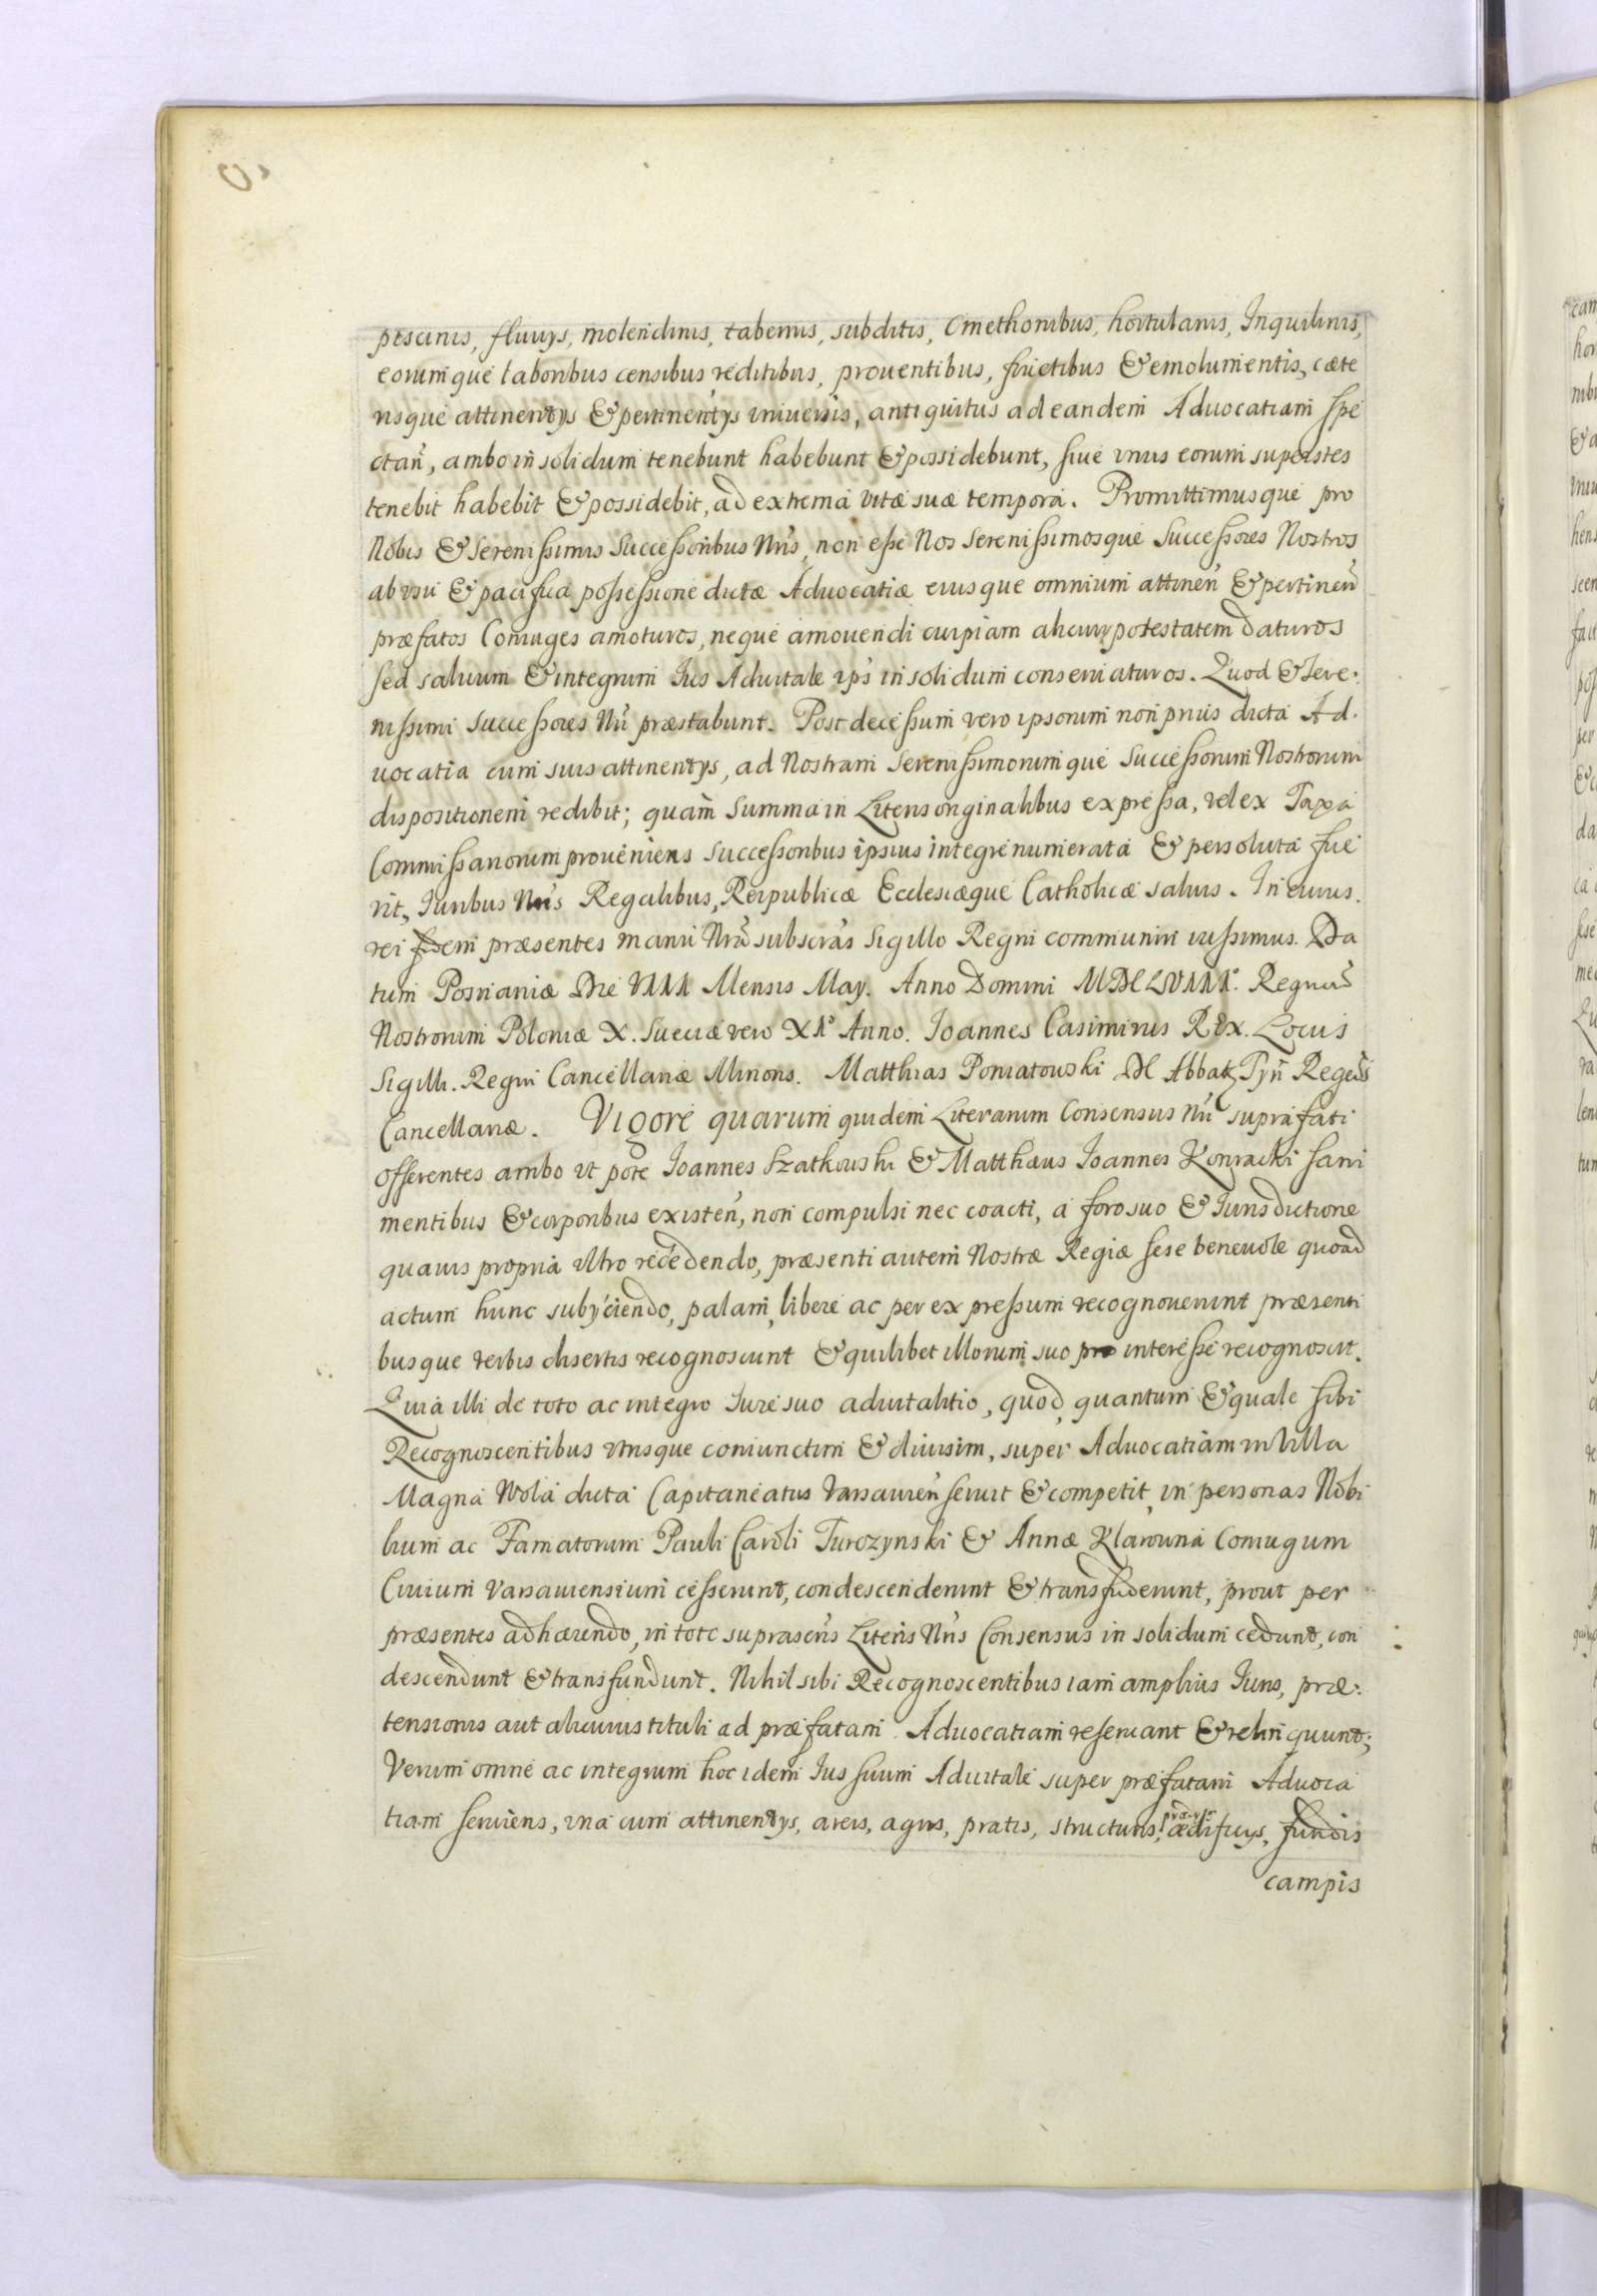 piscinis, fluuys, molendinis, tabernis, subditis, Cmethonibus, hortulanis, Inquilinis,
eorumque laboribus censibus reditibus, prouentibus, fructibus & emolumentis, cæte
risque attinentys & pertinentys vniuersis, antiquitus ad eandem Aduocatiam spe
ctan̄, ambo in solidum tenebunt habebunt & possidebunt, siue vnus eorum superstes
tenebit habebit & possidebit, ad extrema vitæ suæ tempora. Promittimusque pro
Nobis & Serenissimis Successoribus Nr̄is, non esse Nos Serenissimosque Successores Nostros
ab vsu & pacifica possessione dictæ Aduocatiæ eiusque omnium attinen̄ & pertinen̄
præfatos Coniuges amoturos, neque amouendi cuipiam alicuiy potestatem daturos
sed saluum & integrum Ius Aduitale ips̄ in solidum conseruaturos. Quod & Sere:
nissimi Successores Nr̄i præstabunt. Post decessum vero ipsorum non prius dicta Ad.
uocatia cum suis attinentys, ad Nostram Serenissimorumque Successorum Nostrorum
dispositionem redibit; quam Summa in Literis originalibus expressa, vel ex Taxa
Commissariorum proueniens Successoribus ipsius integre numerata & persoluta fue
rit, Iuribus Nr̄is Regalibus, Reipublicæ Ecclesiæque Catholicæ saluis. In cuius.
rei fidem præsentes manu Nrā subscrās Sigillo Regni communiri iussimus. Da
tum Posnaniæ Die VIII Mensis May. Anno Domini MDCLVIII°. Regnor̄
Nostrorum Poloniæ X. Sueciæ vero XI° Anno. Ioannes Casimirus Rex. Locus
Sigilli. Regni Cancellariæ Minoris. Matthias Poniatowski DC Abbatz Tyn̄ Regens
Cancellariæ. Vigore quarum quidem Literarum Consensus Nr̄i suprafati
offerentes ambo vt pote Ioannes Szatkowski & Matthæus Ioannes Konracki sani
mentibus & corporibus existen̄, non compulsi nec coacti, a foro suo & Iurisdictione
quauis propria vltro recedendo, præsenti autem Nostræ Regiæ sese beneuole quoad
actum hunc subyciendo, palam, libere ac per expressum recognouerunt præsenti
busque verbis disertis recognoscunt & quilibet illorum suo pro interesse recognoscit.
Quia illi de toto ac integro Iure suo aduitalitio, quod, quantum & quale sibi
Recognoscentibus vtrisque coniunctim & diuisim, super Aduocatiam in Villa
Magna Wola dicta Capitaneatus Varsauien̄ seruit & competit, in personas Nobi
lium ac Famatorum Pauli Caroli Turczynski & Annæ Klarowna Coniugum
Ciuium Varsauiensium cesserunt, condescenderunt & transfuderunt, prout per
præsentes adhærendo, in toto suprascr̄is Literis Nr̄is Consensus in solidum cedunt, con
descendunt & transfundunt. Nihil sibi Recognoscentibus iam amplius Iuris, præ:
tensionis aut alicuius tituli ad præfatam Aduocatiam reseruant & relinquunt;
Verum omne ac integrum hoc idem Ius suum Aduitale super præfatam Aduoca
tiam seruiens, vna cum attinentys, areis, agris, pratis, structuris, ædificys, fundis
campis